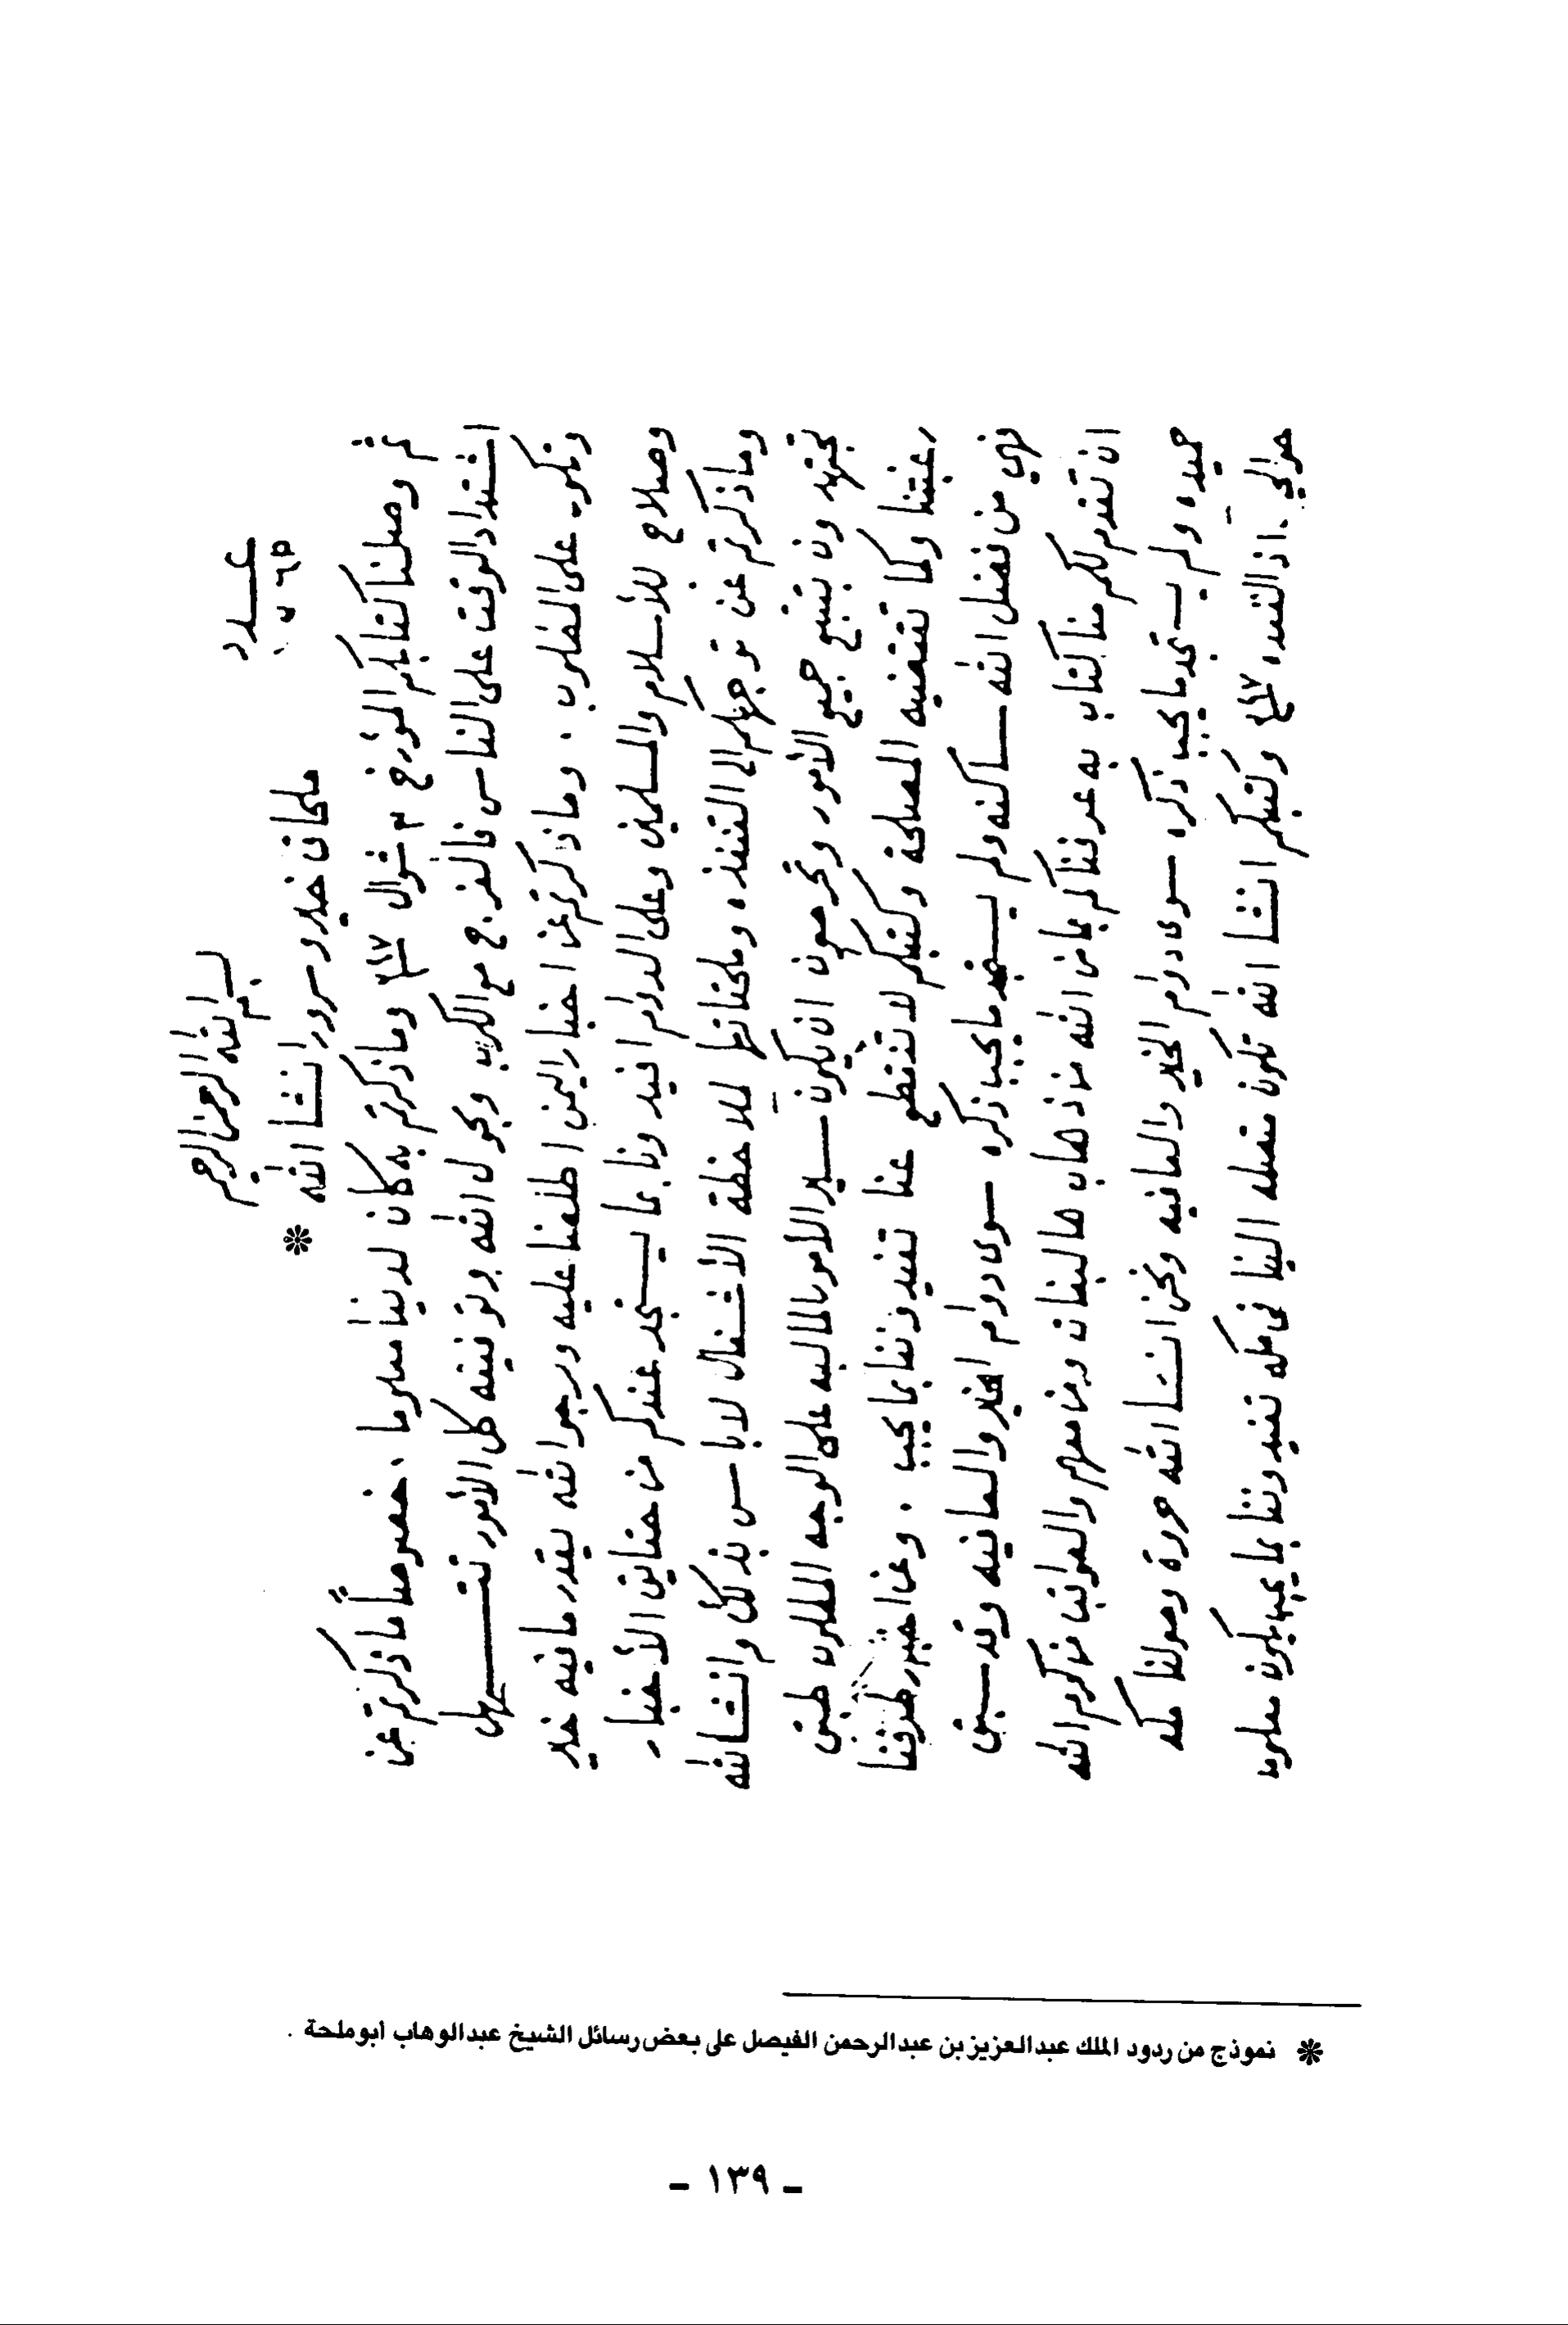 بسم الله الرحمن الرحيم
عدد
٥٦
ملحاق خير وسرور انشا الله *
ثم وصلنا كتابكم المؤرخ شوال وما ذكرتم به كان لدينا معلوما . خصوصاً ما ذكرتم عن
اشتداد الوقت على الناس فالفرج مع الكرب وبحول الله وتوفيقه كل الأمور تتسهل
وتكون على المطلوب . وما ذكرتم عن اخبار اليمن اطلعنا عليه ونرجوا الله يقدر ما فيه خير
وصلاح للأسلام والمسلمين وعلى الدوام افيدونا بما يستجد عندكم من حقايق الأخبار
وما ذكرتم عن توجهكم الى القنفذه وملحقاتها لملاحظة الأشغال لا باس بذلك وانشالله
تجتهدون بتتبع جميع الأمور وتحرصون ان يكون سير الأمور الماليه على الوجه المطلوب طبق
رغبتنا وكما تقتضيه المصلحة وكتبكم لا تنقطع عنا تفيدوننا بما يجب . وعن اخبار طرفنا
فهي من فضل الله ساكنه ولم يستجد ما يجب ذكره سوى دوام الخير والعافيه وقد سبق
ان تقدم لكم منا كتاب به عرفناكم بما من الله من ذهاب هالبغات ومن معهم والعواقب من كرم الله
حميده ولم يستجد ما يجب ذكره سوى دوام الخير والعافيه ونحن انشا الله حررة وصولنا مكه
حوالي القعده وكتبكم انشا الله تكون متصله الينا في مكه تفيدوننا بما يجب يكون معلوم
* نموذج من ردود الملك عبدالعزيز بن عبدالرحمن الفيصل على بعض رسائل الشيخ عبدالوهاب ابو ملحة .
ـ ١٣٩ ـ